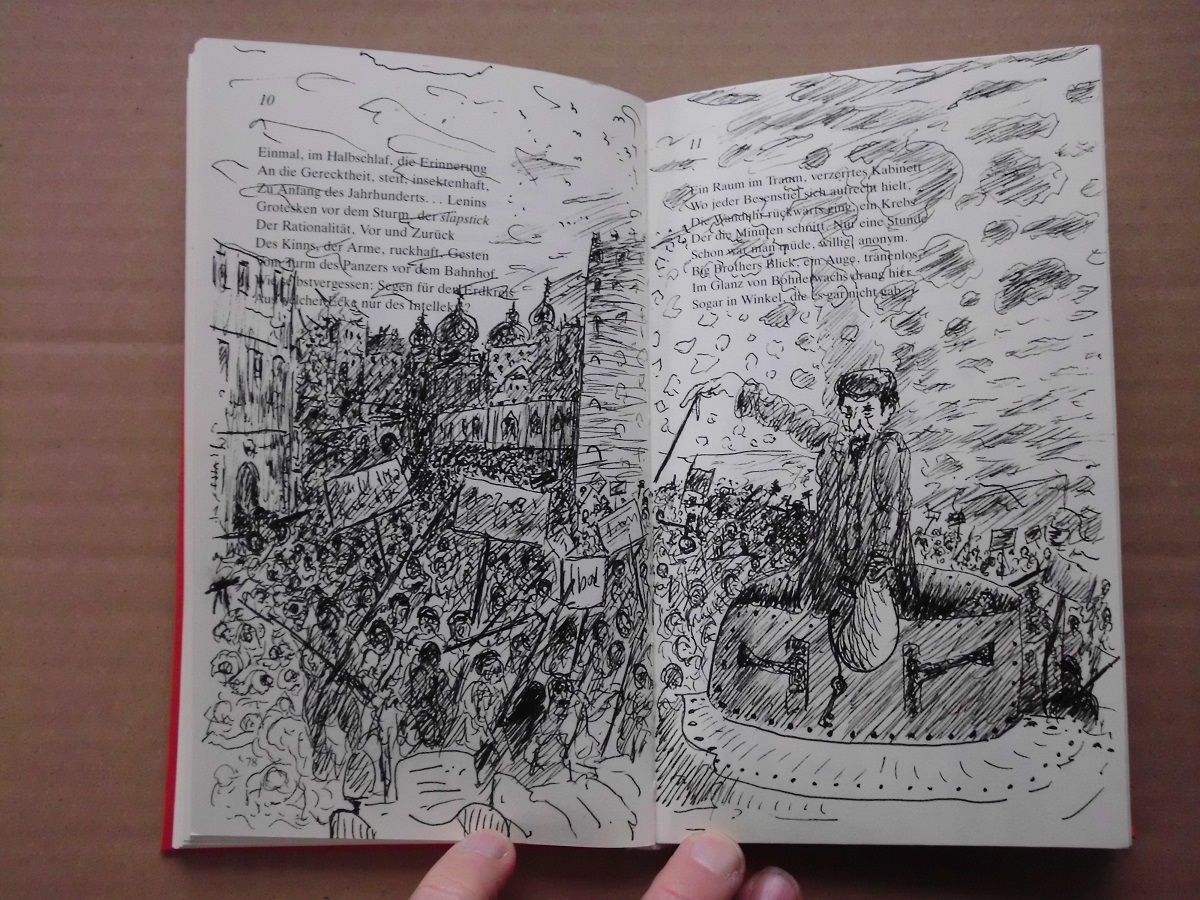 10
Einmal, im Halbschlaf, die Erinnerung
An die Gerecktheit, steif, insektenhaft,
Zu Anfang des Jahrhunderts. . . Lenins
Grotesken vor dem Sturm, der slapstick
Der Rationalität, Vor und Zurück
Des Kinns, der Arme, ruckhaft, Gesten
Vom Turm des Panzers vor dem Bahnhof.
bstvergessen: Segen für den Erdkreis
Aus welcher Ecke nur des Intellekts?
78
11
Ein Raum im Traum, verzerrtes Kabinett
Wo jeder Besenstiel sich aufrecht hielt,
Die Wanduhr rückwärts ging, ein Krebs
Der die Minuten schnitt. Nur eine Stunde
Schon war man müde, willig, anonym.
Big Brothers Blick, ein Auge, tränenlos
Im Glanz von Bohnerwachs drang hier
Sogar in Winkel, die es gar nicht gab.